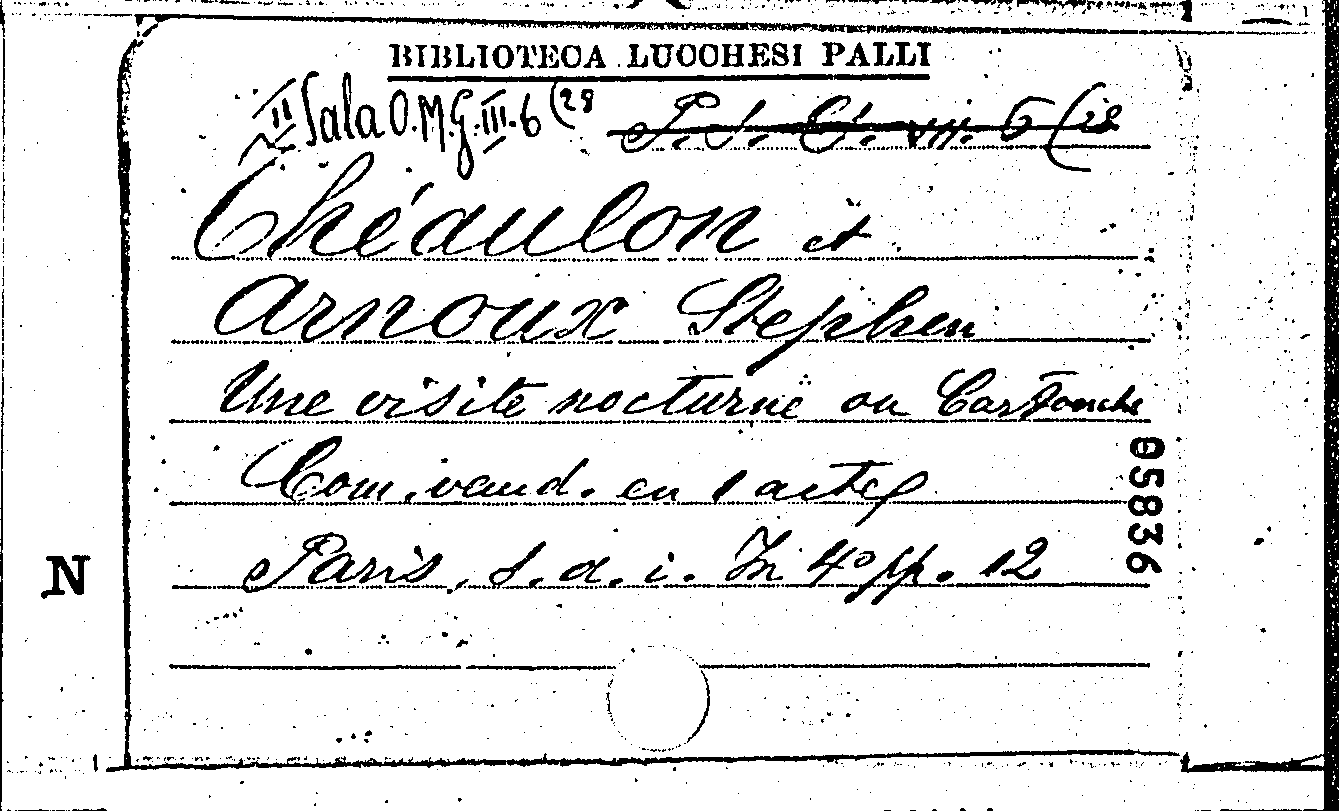 BIBLIOTECA LUCCHESI PALLI
II Sala O.M.G. III. 6 (28
P. S. C. VII. 6 (28
Théaulon et
Arnoux Stephen
Une visite nocturne ou Cartouche
Com. vaud. en 1 acte
Paris, s. d. i. In 4° pp. 12
05836
N